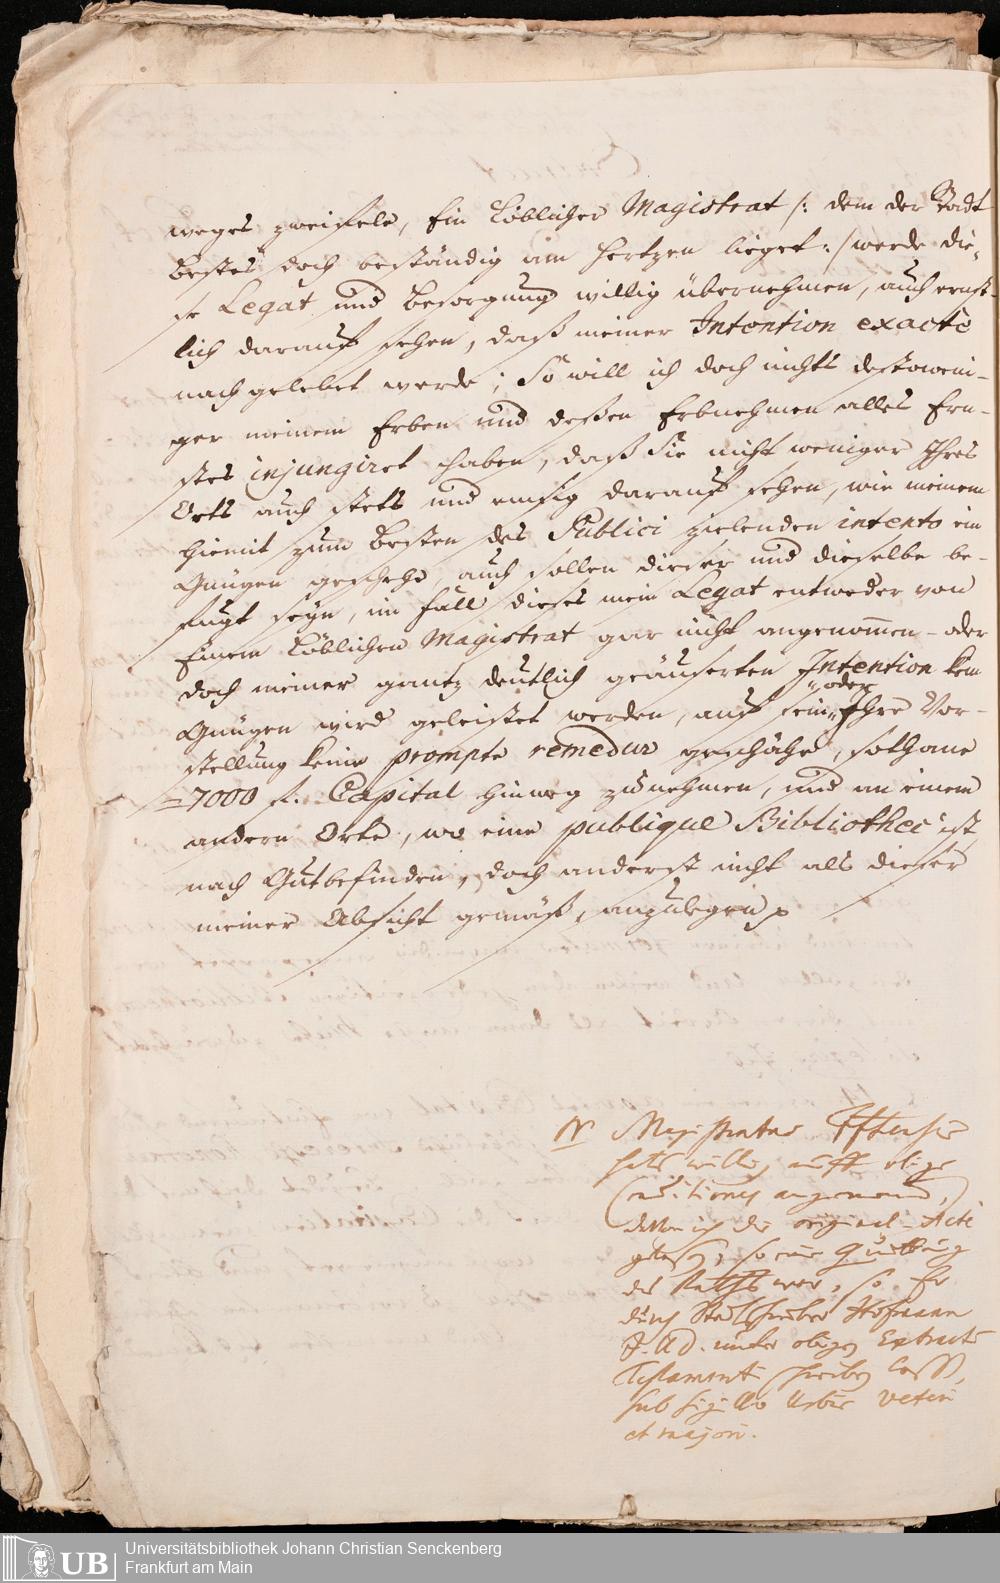 weges zweifele, Ein Löblicher Magistrat /: dem der Stadt
Bestes doch beständig am Hertzen lieget :/ werde die„
se Legat und Besorgung willig übernehmen, auch ernst-
lich darauff sehen, daß meiner Intention exacte
nachgelebet werde; So will ich doch nichts destoweni-
ger meinem Erben und deßen Erbnehmen alles Ern-
stes injungiret haben, daß Sie nicht weniger Ihres
Orts auch stets und emsig darauff sehen, wie meinem
hiemit zum Besten des Publici zielenden intento ein
Gnügen geschehe, auch sollen dieser und dieselbe be-
fugt seyn, im Fall dieses mein Legat entweder von
Einem Löblichen Magistrat gar nicht angenom̄en - oder
doch meiner gantz deutlich geäuserten Intention kein
Gnügen wird geleistet werden, auf sein „oder Ihre Vor-
stellung keine prompte remedur geschähe, sothane
=7000 f. Capital hinweg zu nehmen, und an einem
andern Orte, wo eine publique Bibliothec ist,
nach Gutbefinden, doch anderst nicht als dieser
meiner Absicht gemäß, anzulegen
N Magistratus
hats willig auff obige
Conditiones angenomen,
ich die original-Acte
gelesen, so eine Quittung
des Raths war, so Er
durch Stadtschreiber Hofmann
unter obigen Extract
Testamenti schreiben lassen,
sub sigillo Urbis veteri
et majori.
Universitätsbibliothek Johann Christian Senckenberg
Frankfurt am Main
UB